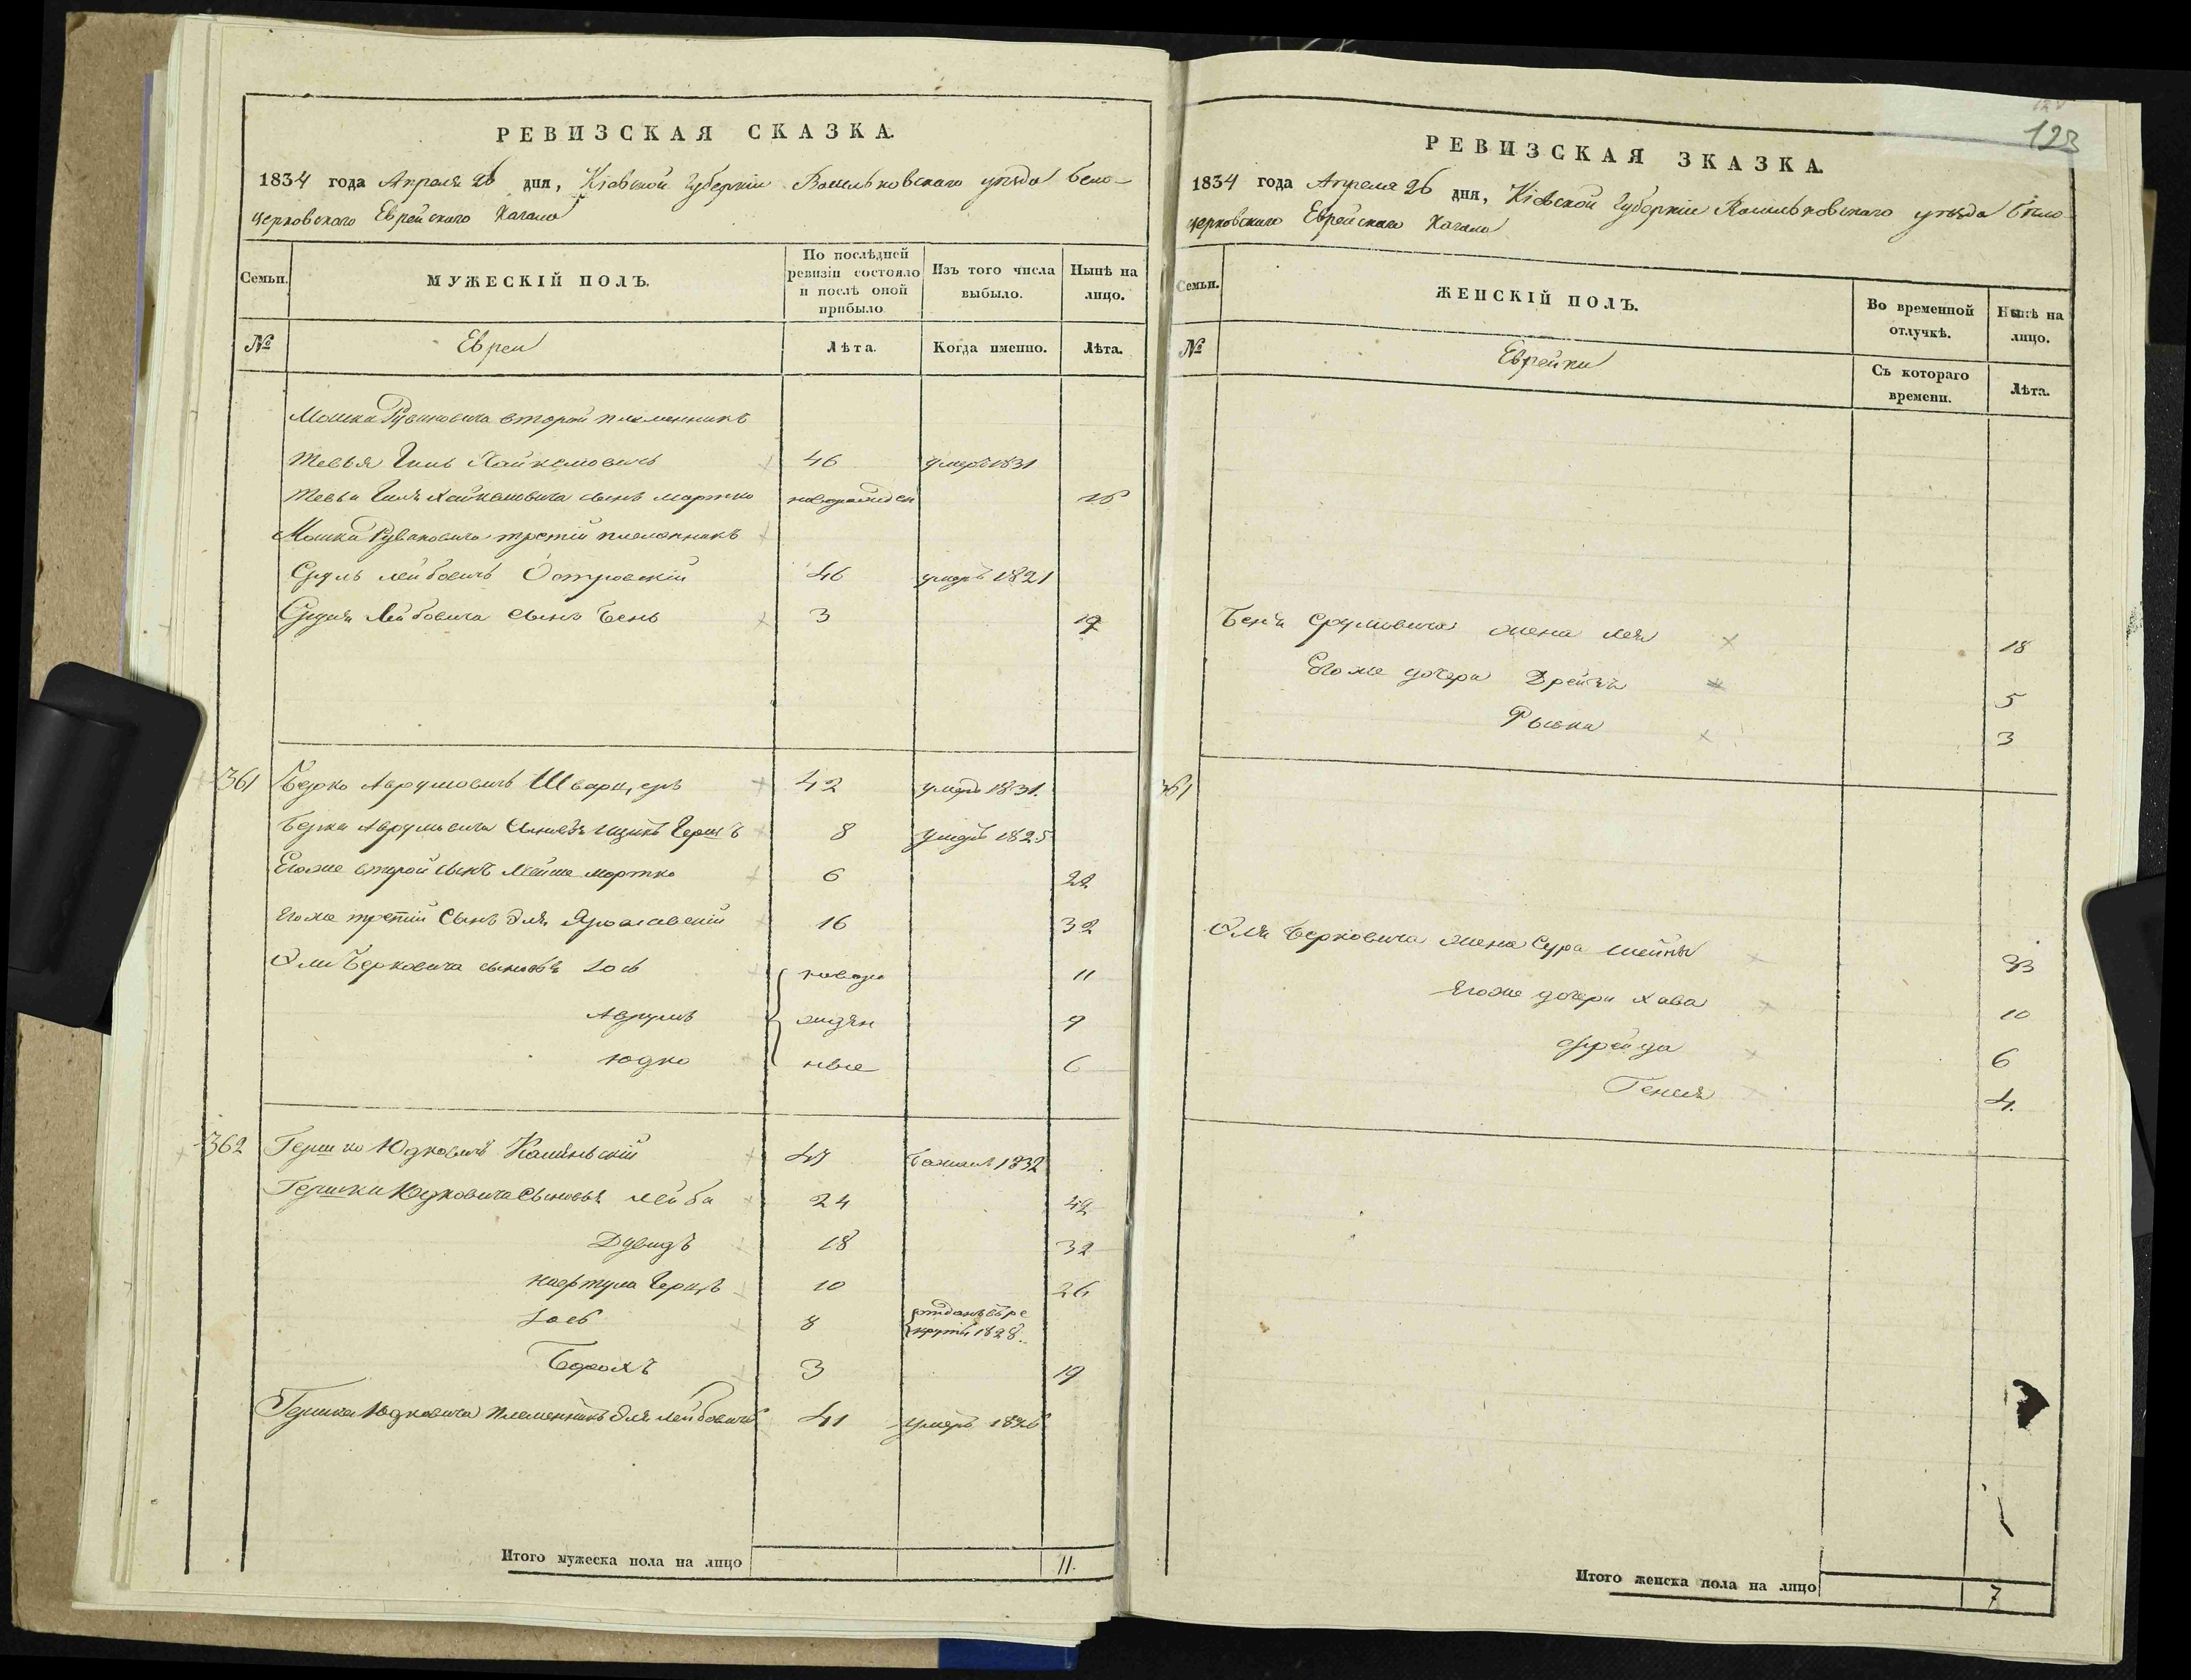 РЕВИЗСКАЯ СКАЗКА.
1834 года Апреля 26 дня, Кіевской Губерніи Васильковскаго уѣзда Бело-
церковскаго Еврейскаго Кагала
Семьи.
МУЖЕСКІЙ ПОЛЪ.
По послѣдней ревизіи состояло и послѣ оной прибыло
Изъ того числа выбыло.
Нынѣ на лицо.
№
Евреи
Лѣта.
Когда именно.
Лѣта.
Мошка Рувиновича второй племянникъ
Тевья Гиль Хаймовичъ 46 умеръ 1831
Тевьи Гиля Хаймовича сынъ Мортко новорожден 16
Мошка Рувиновича третій племянникъ
Сруль Лейбовичъ Островскій 46 умеръ 1821
Сруля Лейбовича сынъ Бень 3 19
361 Берко Аврумовичъ Шварцеръ 42 умеръ 1831.
Берка Аврумовича сыновья Ицикъ Гершъ 8 умеръ 1825
Егоже второй сынъ Мейше Мортко 6 22
Егоже третій сынъ Эля Ярославскій 16 32
Эли Берковича сыновья Іось новоро 11
Аврумъ жден 9
Юдко ные 6
362 Гершко Юдковичъ Каминскій 47 бежалъ 1832
Гершки Юдковича сыновья Лейба 24 42
Дувидъ 18 32
Герцъ 10 26
Іось 8 отданъ въ ре
круты 1828.
Борохъ 3 19
Гершка Юдковича племенникъ Эля Лейбовичъ 41 умеръ 1826
Итого мужеска пола на лицо 11.
123
РЕВИЗСКАЯ ЗКАЗКА.
1834 года Апреля 26 дня, Кіевской Губерніи Васильковскаго уѣзда Бѣло-
церковскаго Еврейскаго Кагала
Семьи.
ЖЕНСКІЙ ПОЛЪ.
Во временной отлучкѣ.
Нынѣ на лицо.
№
Еврейки
Съ котораго времени.
Лѣта.
Беня Срулиовича жена Лея 18
Егоже дочери Дрейзя 5
Рывка 3
361
Эли Берковича жена Сура Шейна 33
Егоже дочери Хава 10
Фрейда 6
Генея 4.
Итого женска пола на лицо 7